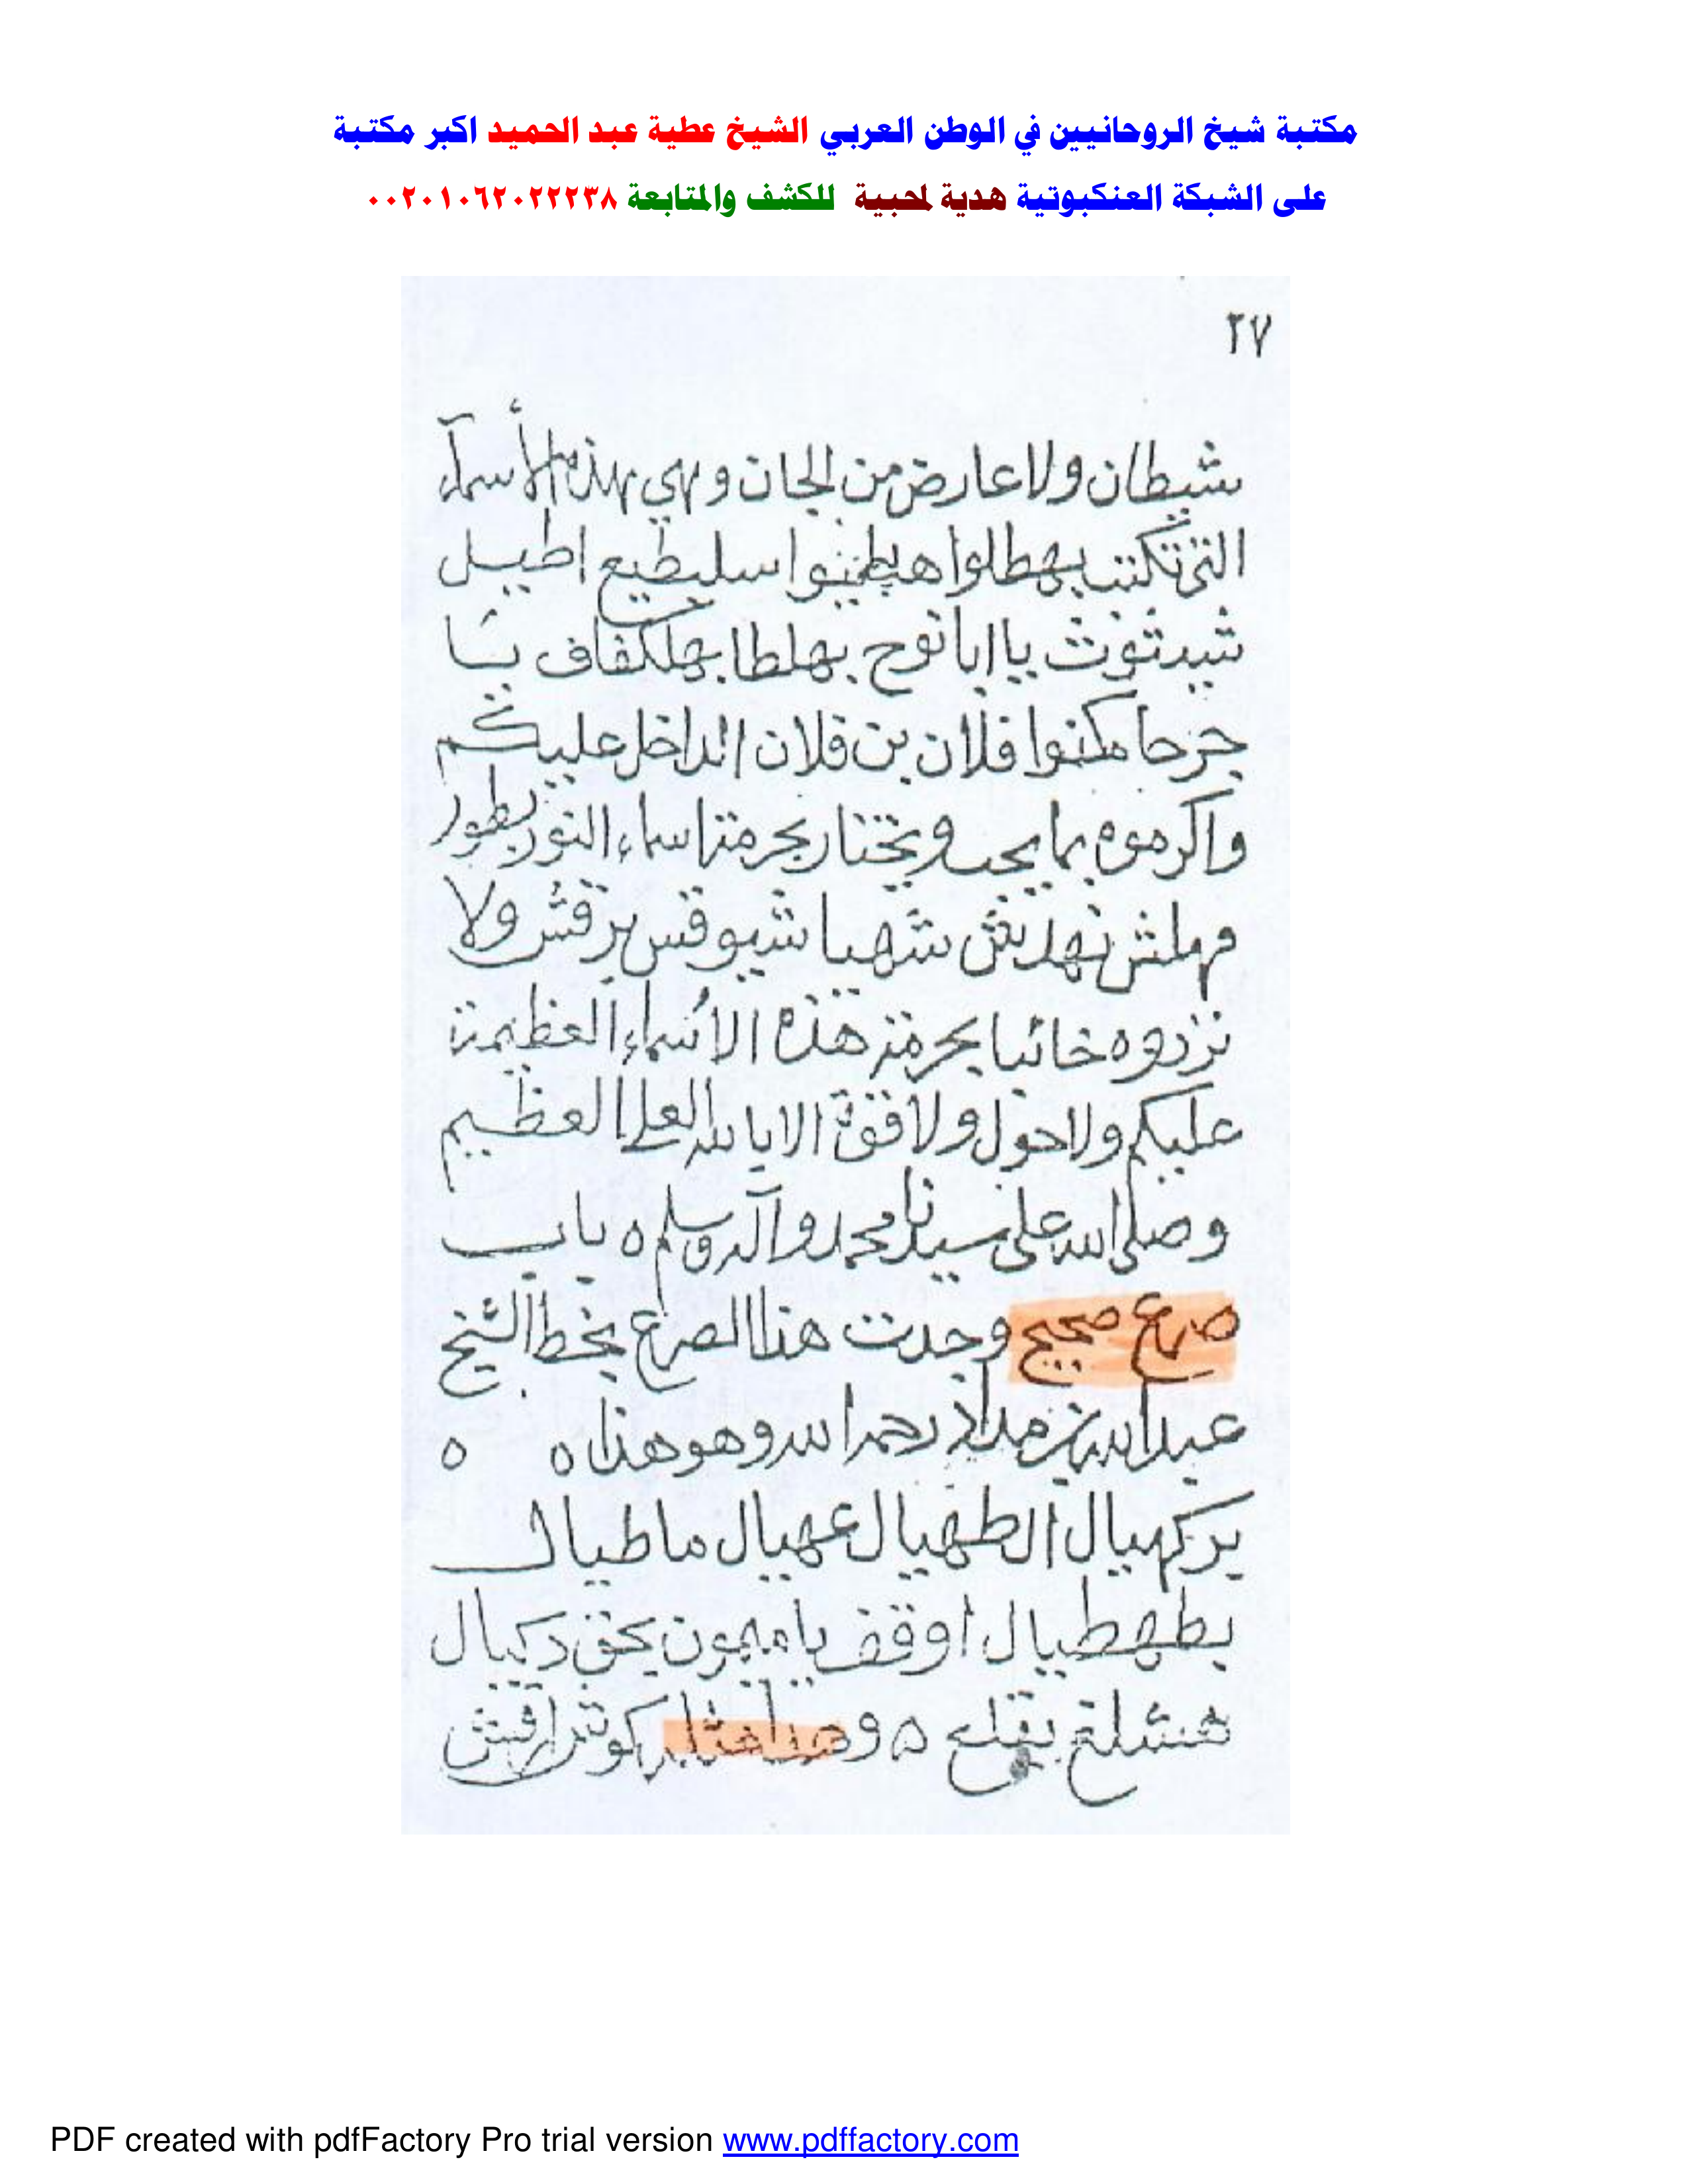 مكتبة شيخ الروحانيين في الوطن العربي الشيخ عطية عبد الحميد اكبر مكتبة
على الشبكة العنكبوتية هدية لمحبية للكشف والمتابعة ٠٠٢٠١٠٦٢٠٢٢٢٣٨
٢٧
شيطان ولا عارض من الجان وهي بهذه الأسماء
التي تكتب بهطلوا اسليطيع اطيل
شيدثوث يا ابا نوح بهلطا بهلكفاف
جرحا مكنوا فلان بن فلان الداخل عليكم
واكرموه بما يحب ويختار بحرمة اسماء النور بطور
مهلش نهدتش شهبا شيوقس برقش ولا
تردوه خائبا بحرمة هذه الاسماء العظيمة
عليكم ولا حول ولا قوة الا بالله العلي العظيم
وصلى الله على سيدنا محمد وآله وسلم ٥ باب
صرع صحيح وجدت هذا الصرع بخط الشيخ
عبد الله بن رحمه الله وهو هذا ٥ ٥
يركهيال الطهيال عهيال ماطيال
بطهطيال اوقف يا ميمون بحق دكيال
هشلخ يقلع ٥ وهذا مثله
PDF created with pdfFactory Pro trial version www.pdffactory.com